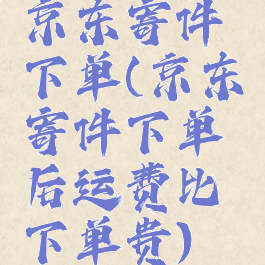 京东寄件
下单(京东
寄件下单
后运费比
下单贵)